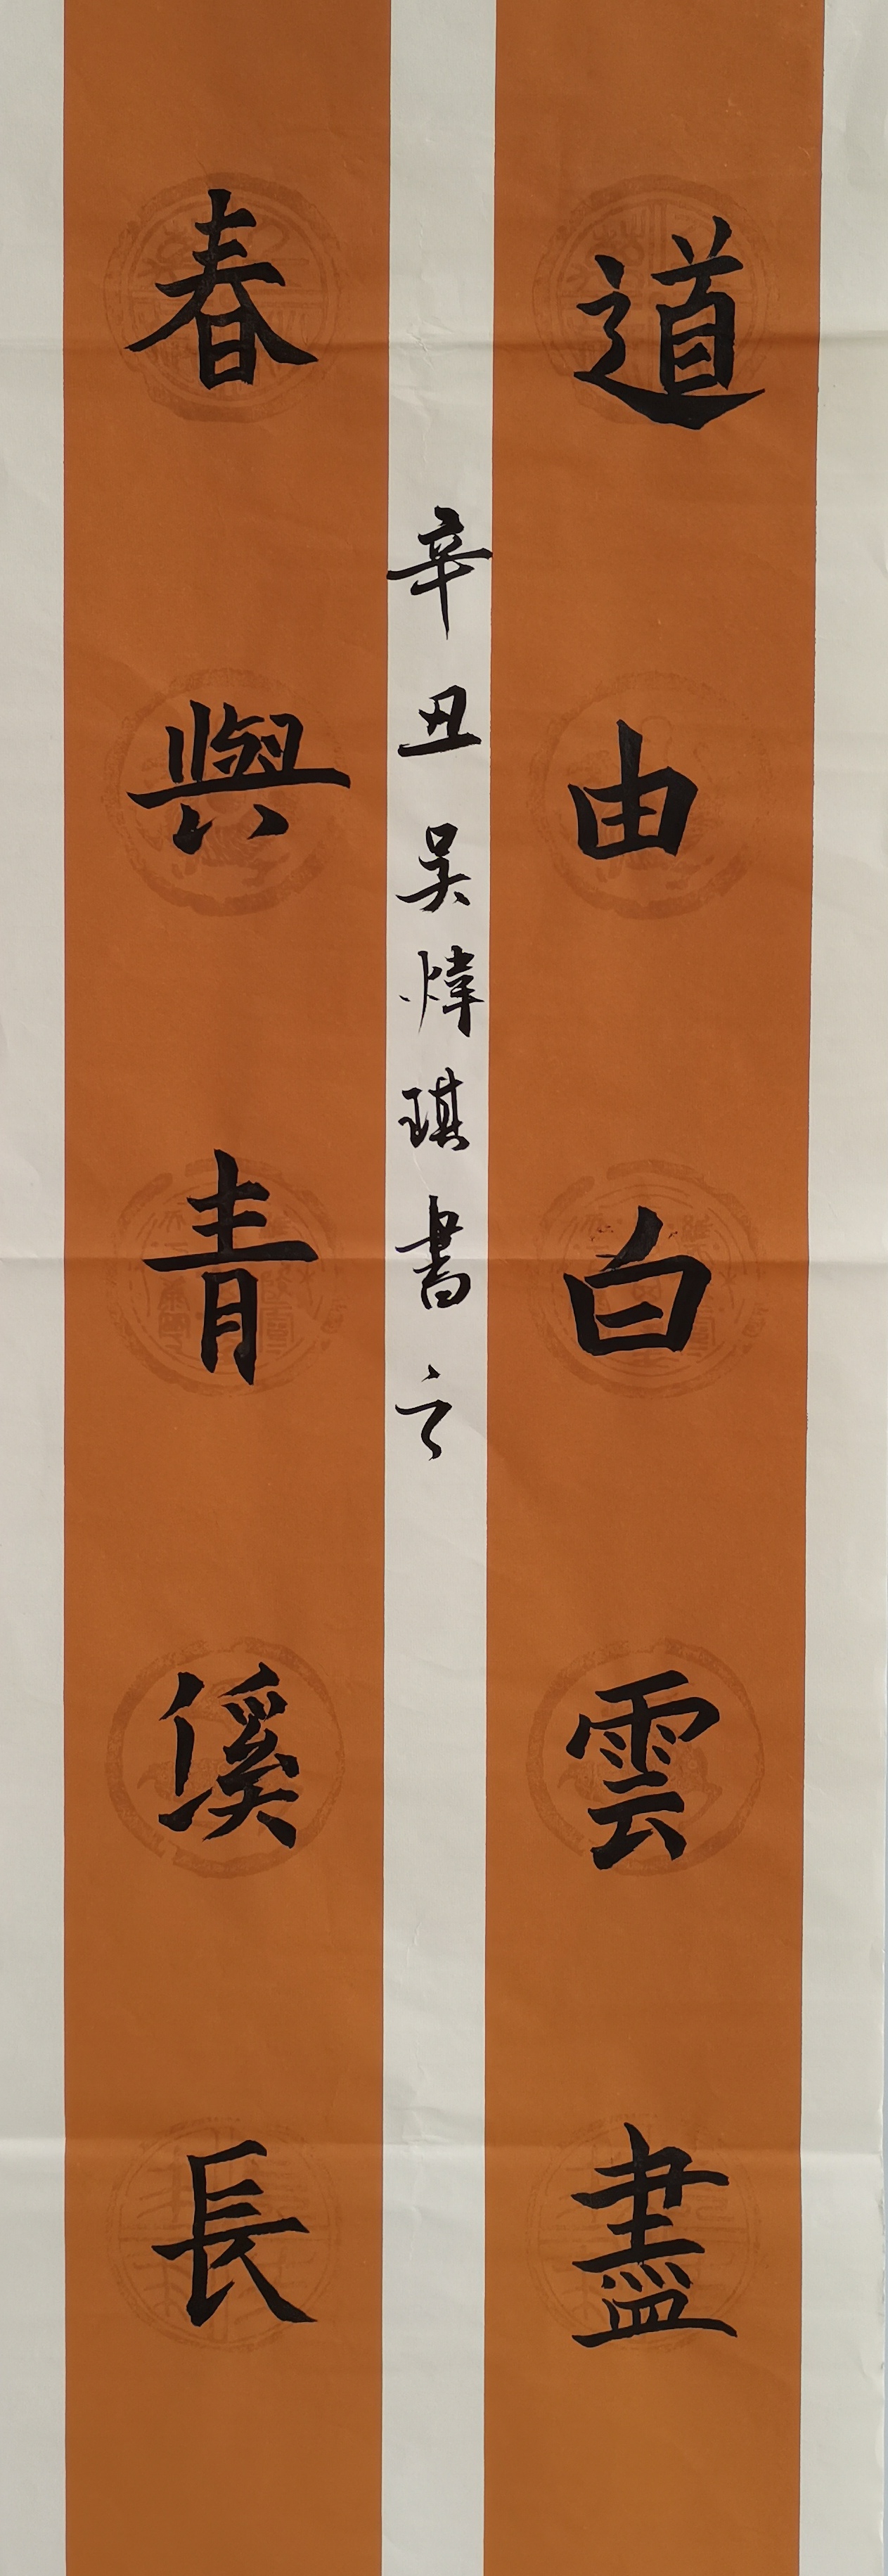 道由白雲盡
春與青溪長
辛丑吴煒琪書之